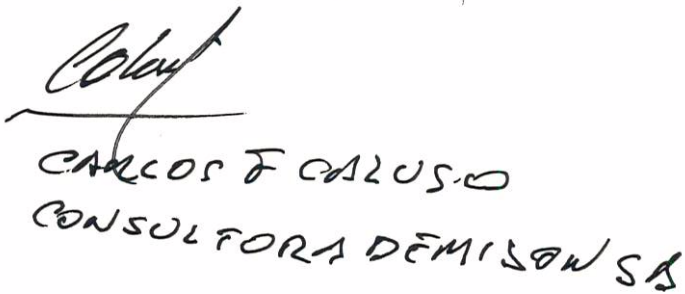 CARLOS F CALUSIO
CONSULTORA DEMISON SA